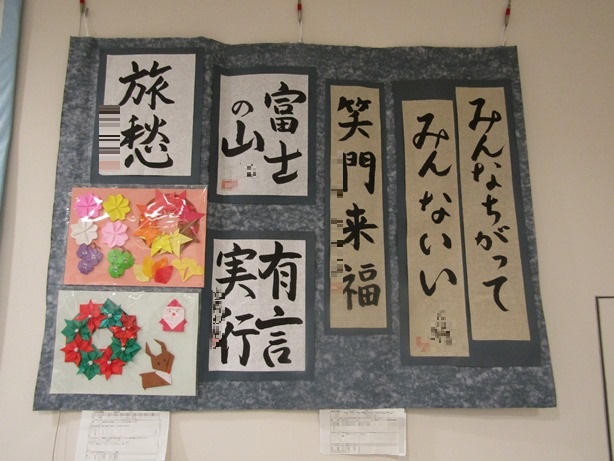 みんなちがって
みんないい
笑門来福
富士
の山
有言
実行
旅愁